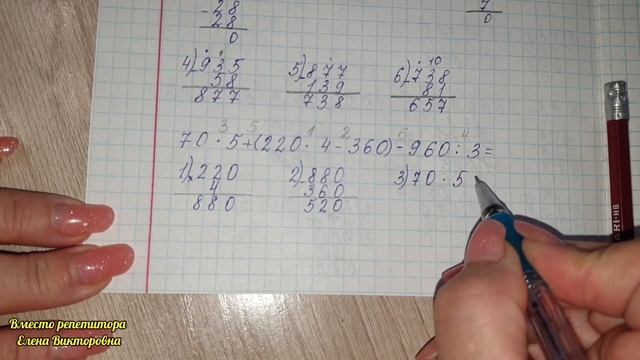 - 28
28
0
7
0
4) - 935
58
877
5) - 877
139
738
10
6) - 738
81
657
3 5 1 2 6 4
70 · 5 + (220 · 4 - 360) - 960 : 3 =
1) × 220
4
880
2) - 880
360
520
3) 70 · 5
RI-HB
Вместо репетитора
Елена Викторовна